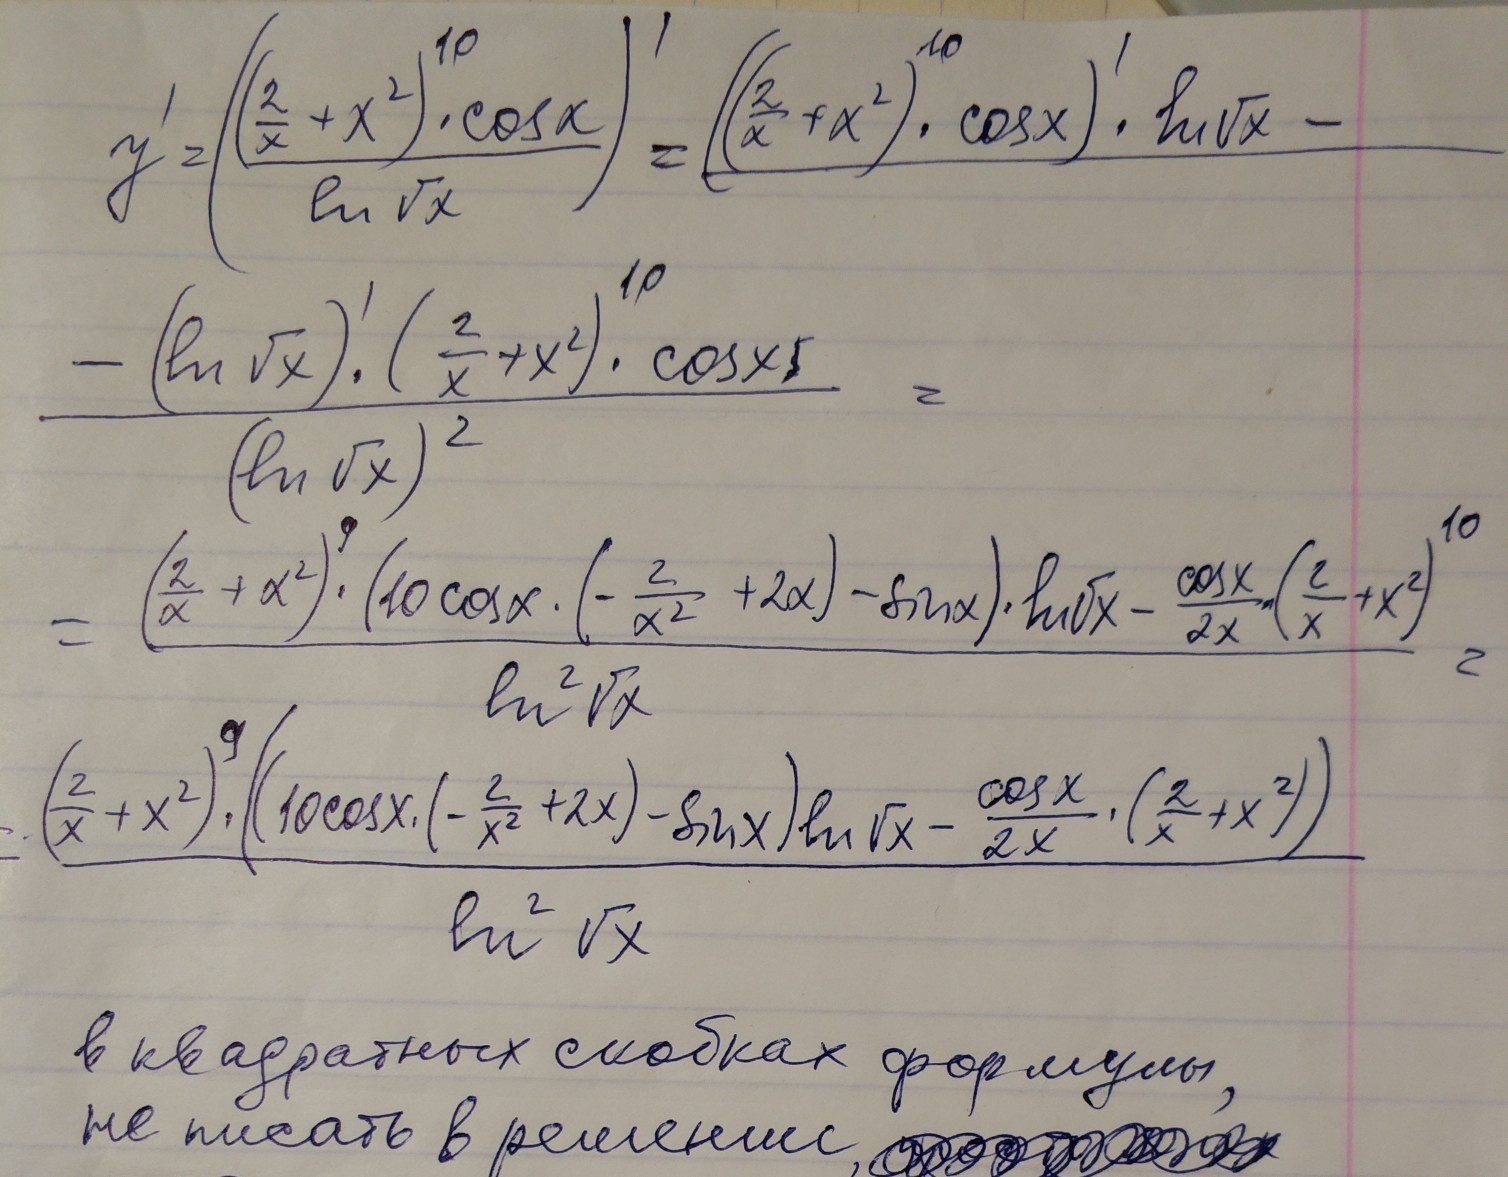 y' = ((2/x + x²)¹⁰ · cosx / ln √x)' = ((2/x + x²)¹⁰ · cosx)' · ln √x −
− (ln √x)' · (2/x + x²)¹⁰ · cosx / (ln √x)² =
= (2/x + x²)⁹ · (10 cosx · (− 2/x² + 2x) − sin x) · ln √x − cosx/2x · (2/x + x²)¹⁰ / ln² √x =
= (2/x + x²)⁹ · ((10 cosx · (− 2/x² + 2x) − sin x) ln √x − cosx/2x · (2/x + x²)) / ln² √x
в квадратных скобках формулы,
не писать в решении,